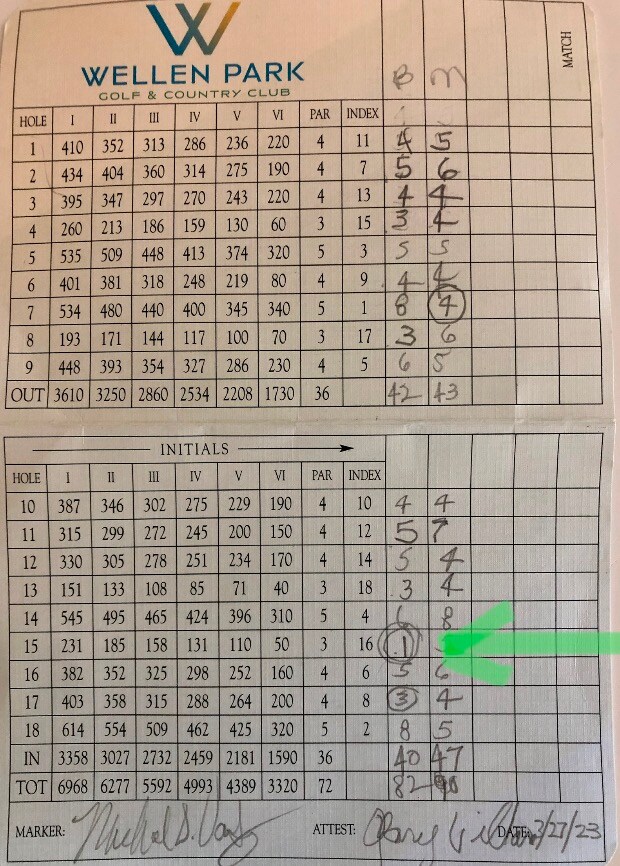 WELLEN PARK
GOLF & COUNTRY CLUB
B M MATCH
HOLE I II III IV V VI PAR INDEX
1 410 352 313 286 236 220 4 11 4 5
2 434 404 360 314 275 190 4 7 5 6
3 395 347 297 270 243 220 4 13 4 4
4 260 213 186 159 130 60 3 15 3 4
5 535 509 448 413 374 320 5 3 5 5
6 401 381 318 248 219 80 4 9 4 4
7 534 480 440 400 345 340 5 1 8 4
8 193 171 144 117 100 70 3 17 3 6
9 448 393 354 327 286 230 4 5 6 5
OUT 3610 3250 2860 2534 2208 1730 36 42 43
INITIALS
HOLE I II III IV V VI PAR INDEX
10 387 346 302 275 229 190 4 10 4 4
11 315 299 272 245 200 150 4 12 5 7
12 330 305 278 251 234 170 4 14 5 4
13 151 133 108 85 71 40 3 18 3 4
14 545 495 465 424 396 310 5 4 6 8
15 231 185 158 131 110 50 3 16 1
16 382 352 325 298 252 160 4 6 5 6
17 403 358 315 288 264 200 4 8 3 4
18 614 554 509 462 425 320 5 2 8 5
IN 3358 3027 2732 2459 2181 1590 36 40 47
TOT 6968 6277 5592 4993 4389 3320 72 82 90
MARKER: ATTEST: DATE: 3/27/23